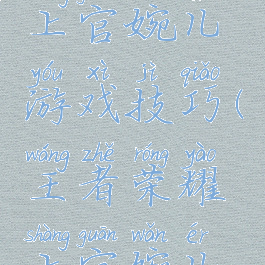 上官婉儿
yóu xì jì qiǎo
游戏技巧(
wáng zhě róng yào
王者荣耀
shàng guān wǎn ér
上官婉儿